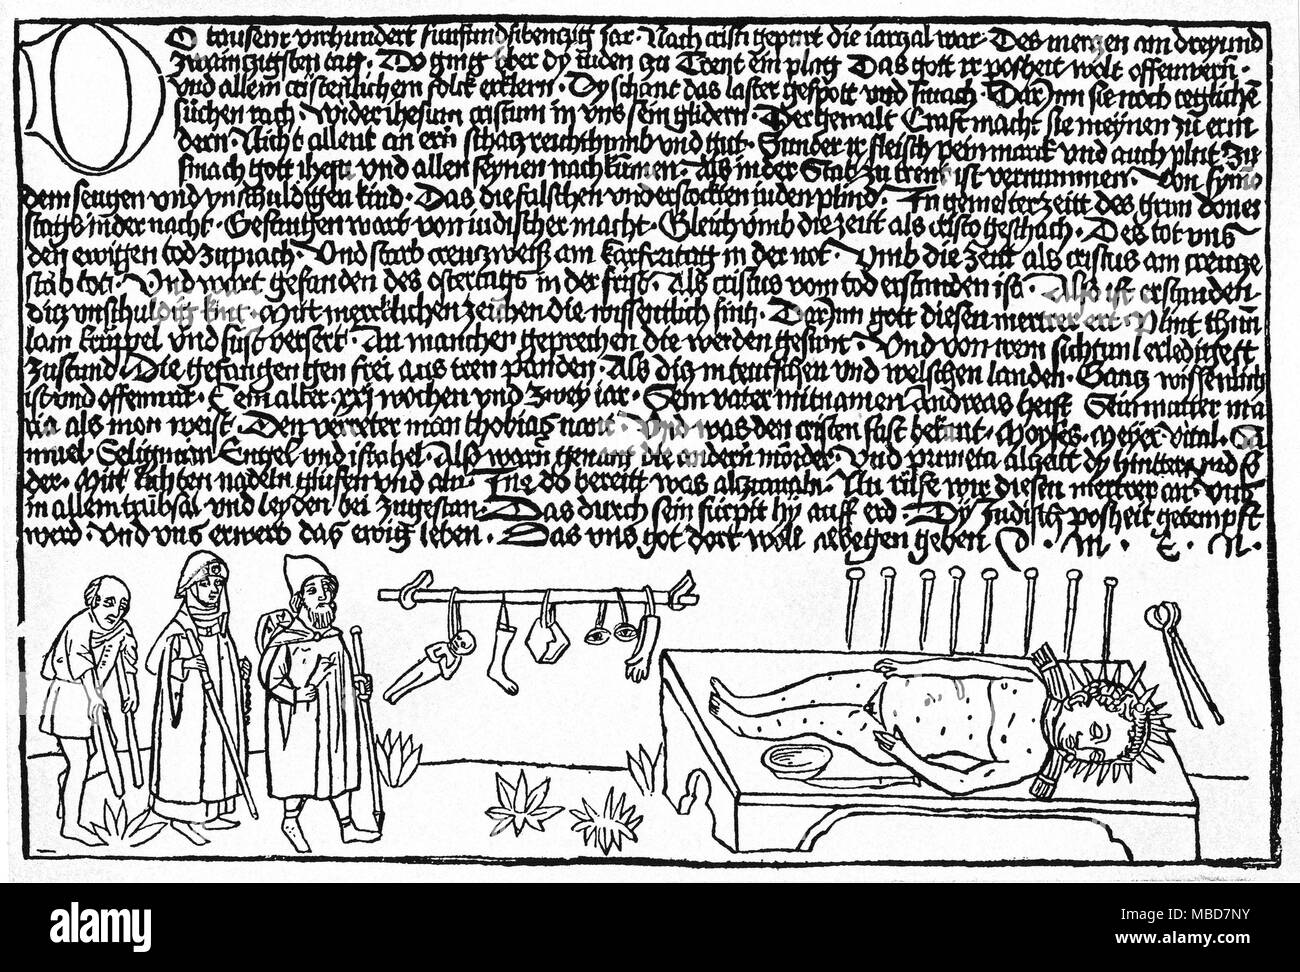 O tausent virhundert funfundsibenczig jar · Nach cristi gepurt die iarzal war · Des merczen am dreyund
zwainzigsten tag · Do ging vber dy iuden zu Trent ein plag Das gott ir posheit wolt offenwern ·
vnd allem cristenlichem folck ercklern · Dy schant das laster gespott vnd smach · Dar Inn sie noch
suchen rach · Wider ihesum cristum in vns sein glidern · Der gewalt Craft macht sie meynen zu
dern · Nicht allent an ern schatz reichthumb vnd gut · Sunder ir fleisch pein marck vnd auch plut Zu
smach gott ihesu vnd allen seynen nachkumen · Als in der Stat zu trent ist vernummen · Von symo
dem seugen vnd vnschuldigen kind · Das die falschen vnd verstockten iuden plind · In gemelter zeitt des grun doners
tags in der nacht · Gefangen wart von iudischer macht · Gleich vmb die zeitt als cristo geschach · Des tot vns
den ewigen tod zuprach · Vnd starb creuczweiß am karfreitag in der not · Vmb die Zeit als cristus am creucze
starb tot · Vnd wart gefunden des ostertags in der frist · Als cristus vom tod erstanden ist · Also ist erstanden
diz vnschuldig kint · Mit mercklichen zeichen die wissentlich sint · Darum gott diesen mertrer ert · Plint
lam krüppel vnd sust versert · An manchen geprechen die werden gesunt · Vnd von irem sichtum erledigt
zustund Die gefangen gen frei aus iren panden · Als diz in teutschen vnd welschen landen · Gantz wissenlich
ist vnd offenwar · E ein alter xxj wochen vnd zwey iar · Sein vater mit namen Andreas heist Sein mutter ma
ria als mon weist · Den verreter mon thobias nant · Vnd was den cristen fast bekant · Moyses · Meyer vital · Sa
muel · Seligman Engel vnd israhel · Also warn genant die andern mörder · Vnd pruneta alzeit dy hintter vnd
der · Mit nadeln glufen vnd aln · Ine do bereitt was · An rüfe wir diesen mertrer an · Vns
in allem trübsal vnd leyden bei zugestan · Das durch sein fürpit hy auff erd · Dy Jüdisch posheit getempft
werd · Vnd vns erwerb das ewig leben · Das vns got dort woll albegen geben · A · M · E · N ·
alamy
Image ID: MBD7NY
www.alamy.com